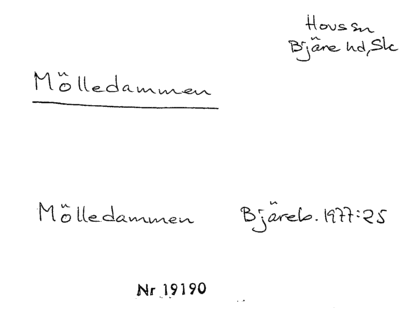 Hovs sn
Bjäre hd, Sk
Mölledammen
Mölledammen Bjäreb. 1977:25
Nr 19190